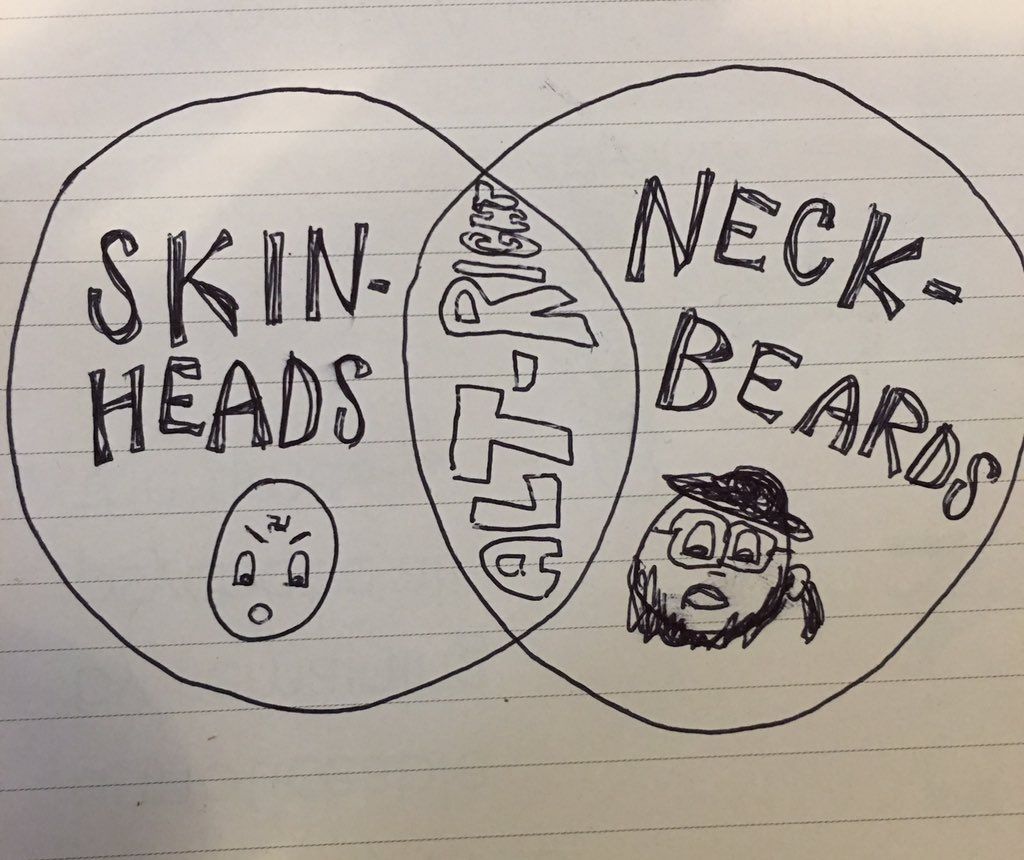 SKIN-
HEADS
ALT-RIGHT
NECK-
BEARDS